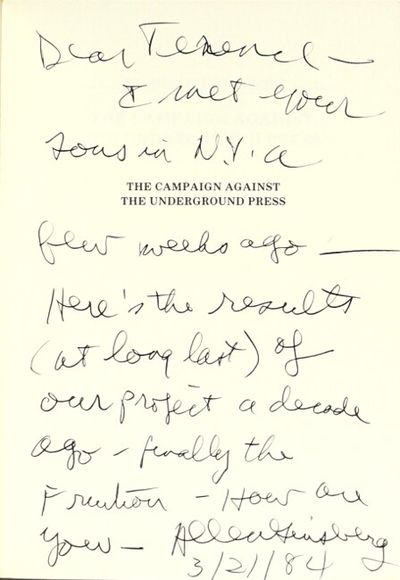 Dear Terence —
I met your
sons in N.Y. a
THE CAMPAIGN AGAINST
THE UNDERGROUND PRESS
few weeks ago —
Here's the results
(at long last) of
our project a decade
ago – finally the
Fruition – How are
you — Allen Ginsberg
3/21/84